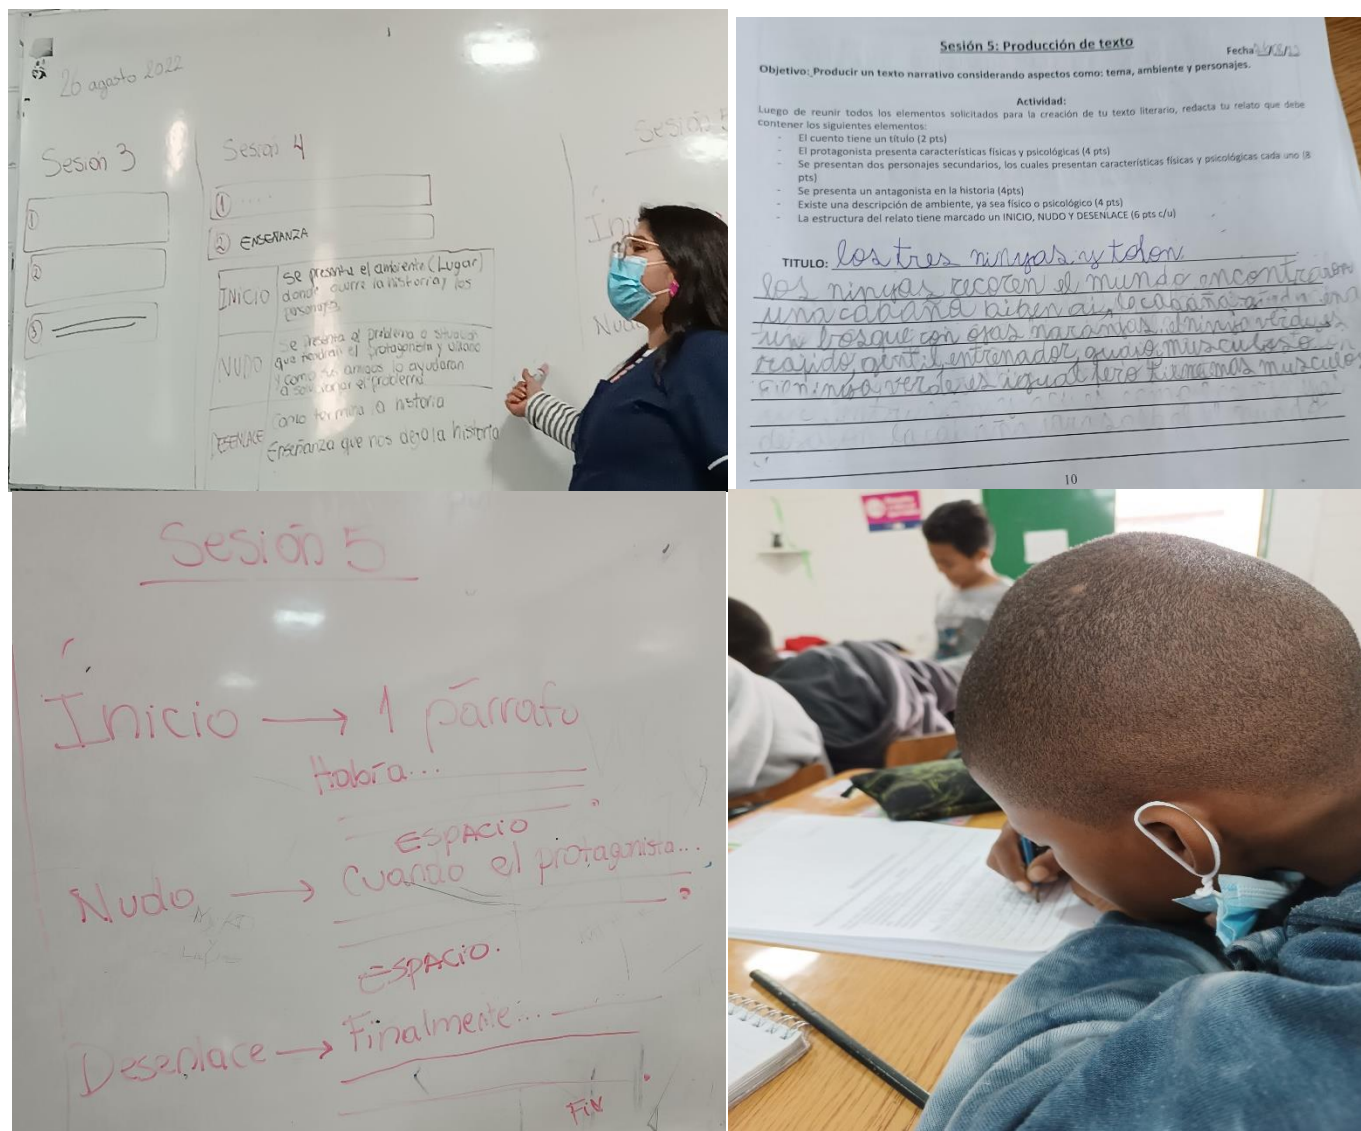 26 agosto 2022
Sesión 3
①
②
③
Sesión 4
① ....
② ENSEÑANZA
INICIO
Se presenta el ambiente (Lugar)
donde ocurre la historia y los
personajes.
NUDO
Se presenta el problema o situación
que tendrán el protagonista y
y como sus amigos lo ayudaran
a solucionar el problema
DESENLACE
Como termina la historia
Enseñanza que nos dejo la historia
Sesión 5
Ini
Nud
Sesión 5: Producción de texto
Fecha
Objetivo: Producir un texto narrativo considerando aspectos como: tema, ambiente y personajes.
Actividad:
Luego de reunir todos los elementos solicitados para la creación de tu texto literario, redacta tu relato que debe
contener los siguientes elementos:
- El cuento tiene un título (2 pts)
- El protagonista presenta características físicas y psicológicas (4 pts)
- Se presentan dos personajes secundarios, los cuales presentan características físicas y psicológicas cada uno (8
pts)
- Se presenta un antagonista en la historia (4pts)
- Existe una descripción de ambiente, ya sea físico o psicológico (4 pts)
- La estructura del relato tiene marcado un INICIO, NUDO Y DESENLACE (6 pts c/u)
TITULO: los tres ninyas y tolon
los ninyas recoren el mundo encontraron
una cabaña biben ai, la cabaña
un bosque con ojas naranjas. el ninja verde es
rapido, gentil, entrenador, musculoso
ninja verde es igual pero tiene mas musculo
10
Sesión 5
Ínicio → 1 párrafo
Había...
ESPACIO
Nudo → Cuando el protagonista...
ESPACIO.
Desenlace → Finalmente...
Fin